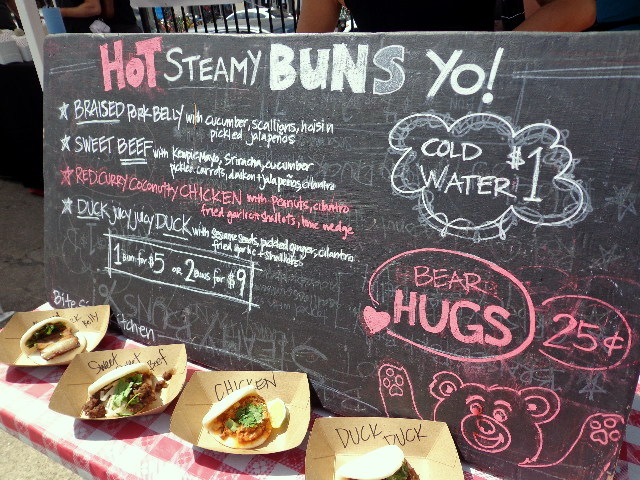 HOT STEAMY BUNS YO!
BRAISED PORK BELLY with cucumber, scallions, hoisin
pickled jalapeños
SWEET BEEF with Kewpie Mayo, Sriracha, cucumber
pickled carrots, daikon + jalapeños, cilantro
RED CURRY COCONUTTY CHICKEN with peanuts, cilantro
fried garlic + shallots, lime wedge
DUCK juicy juicy DUCK with sesame seeds, pickled ginger, cilantro
fried garlic + shallots
1 Bun for $5 OR 2 BUNS for $9
COLD
WATER $1
BEAR
HUGS
25¢
Bite
Kitchen
Belly
Sweet Beef
CHICKEN
DUCK DUCK